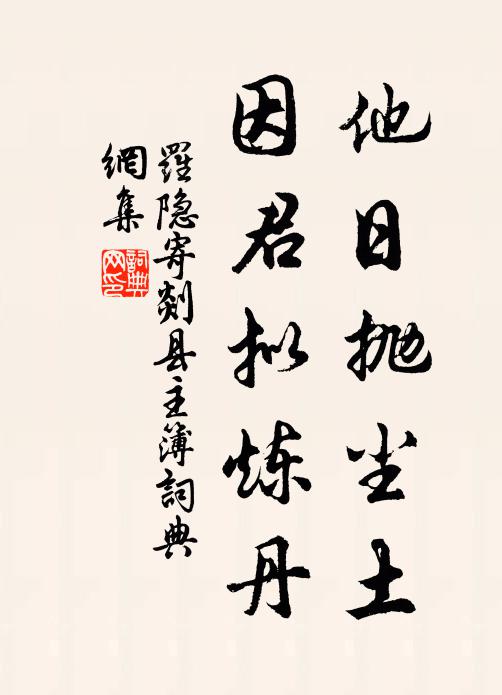 他日抛尘土
因君拟炼丹
羅隐寄剡县主簿詞典
網集
詞典
网印